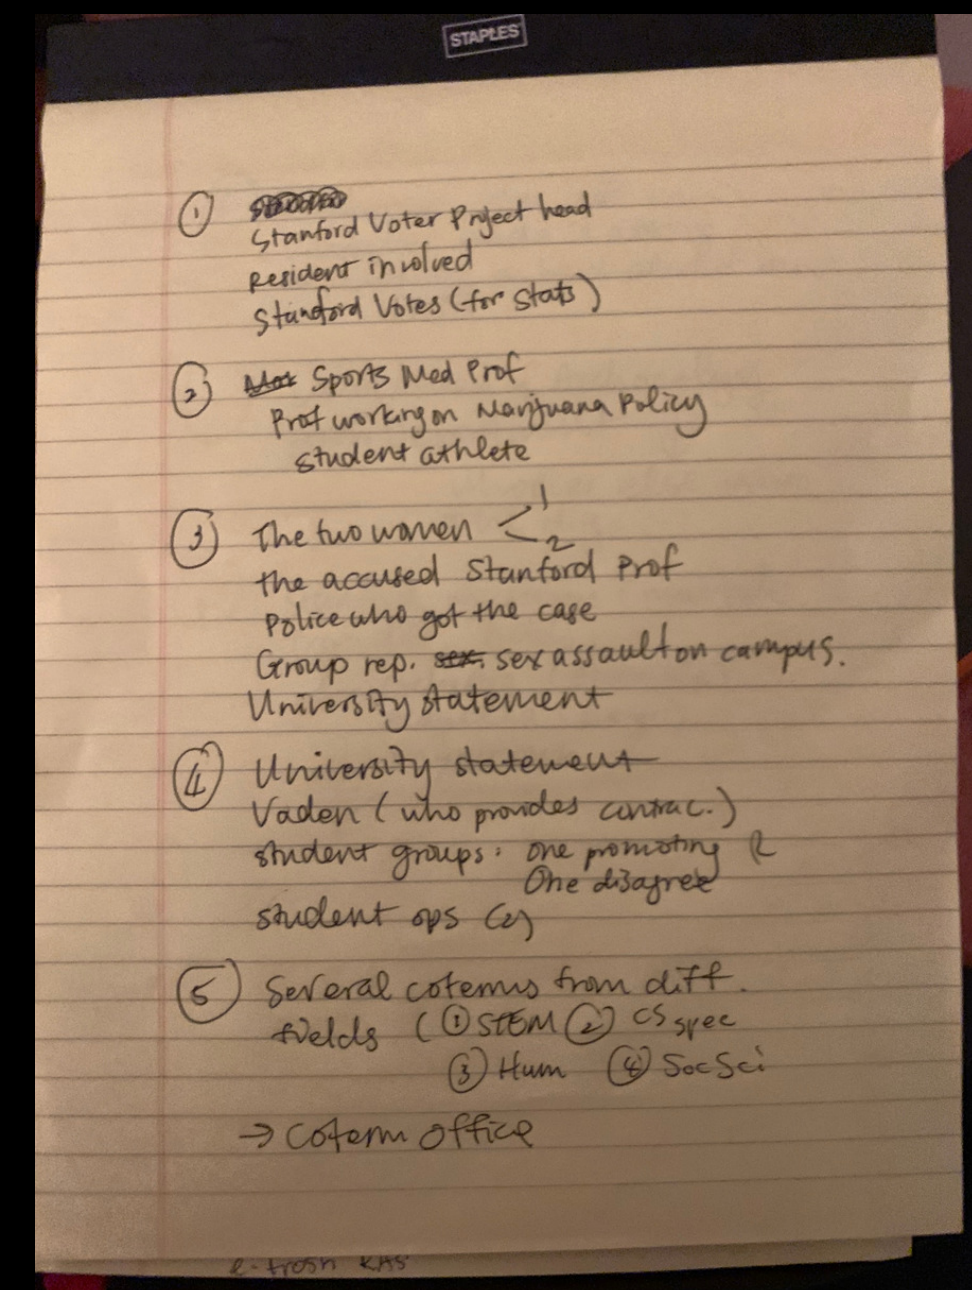 STAPLES
①
Stanford Voter Project head
Resident involved
Stanford Votes (for stats)
② Sports Med Prof
Prof working on Marijuana Policy
student athlete
③ The two women < 1
2
the accused Stanford Prof
Police who got the case
Group rep. sex. sex assault on campus.
University statement
④ University statement
Vaden (who provides contrac.)
student groups: one promoting
One disagree
student ops (2)
⑤ Several coterms from diff.
fields (① STEM ② CS spec
③ Hum ④ SocSci
→ Coterm office